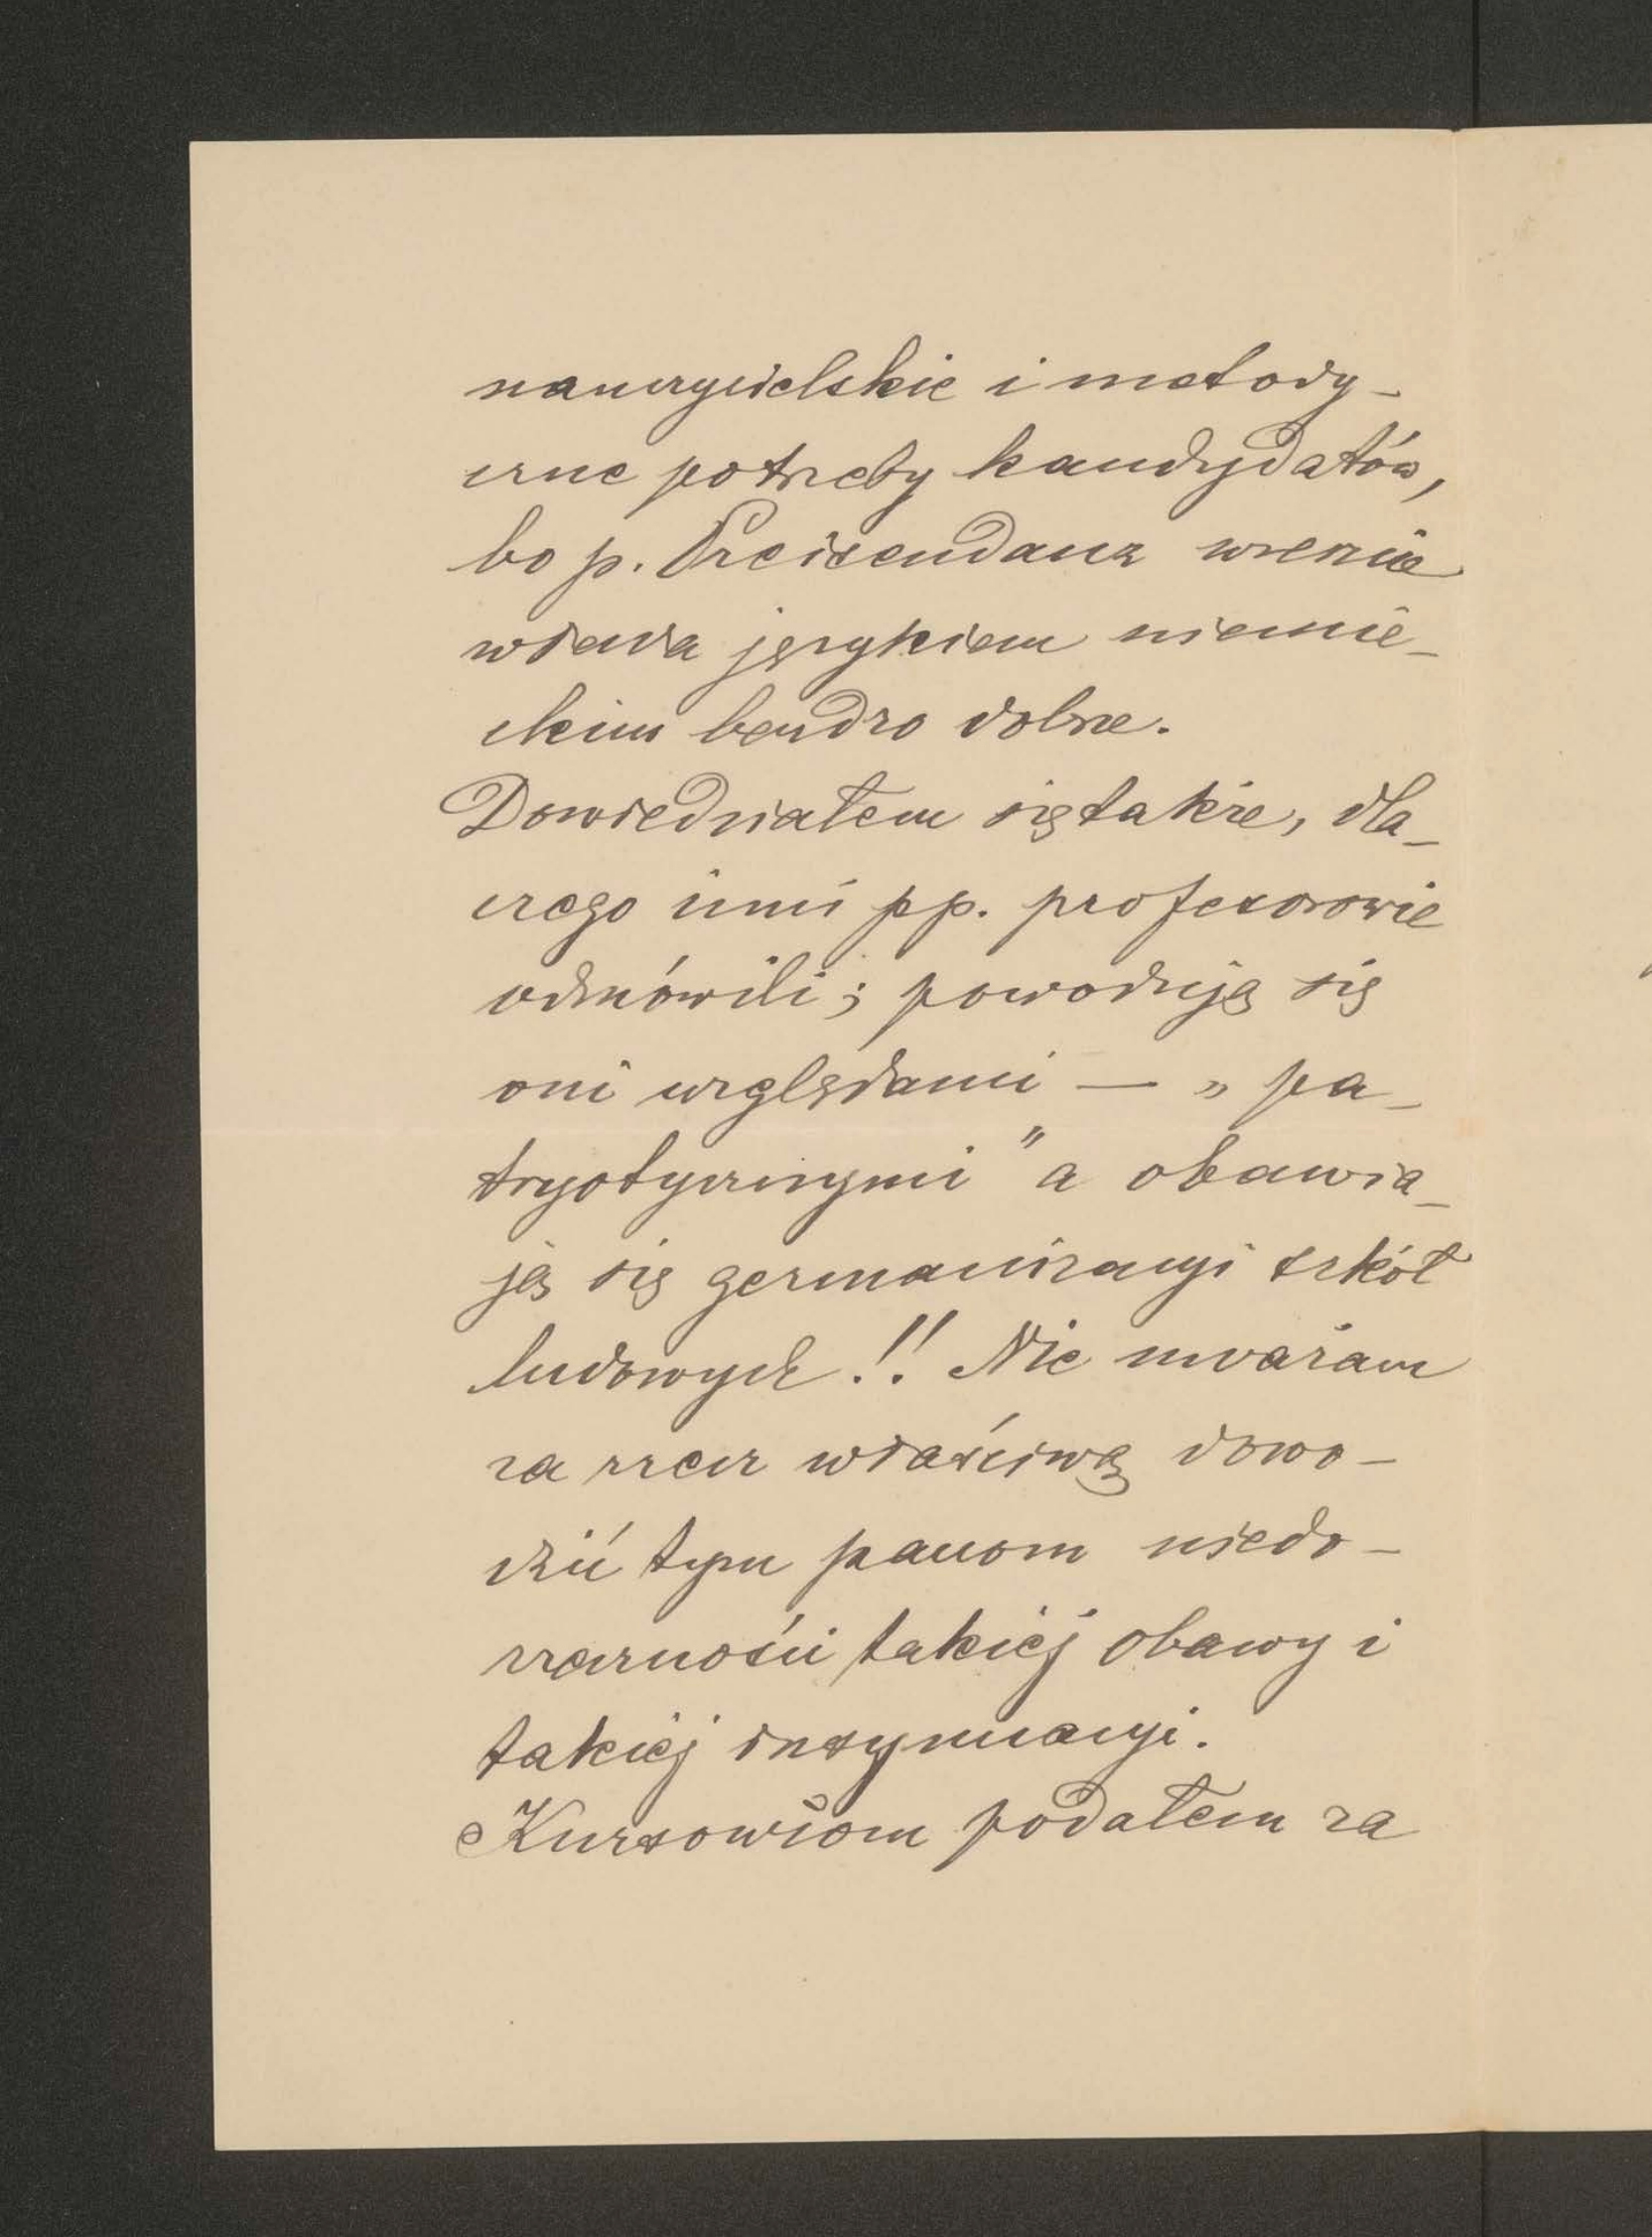 nauczycielskie i metody-
czne potrzeby kandydatów,
bo p. Preisendanz wcale nie
włada językiem niemie-
ckim bardzo dobrze.
Dowiedziałem się także, dla-
czego inni pp. profesorowie
odmówili; powodują się
oni względami — „pa-
tryotycznymi" a obawia-
ją się germanizacyi szkół
ludowych!! Nie uważam
za rzecz właściwą dowo-
dzić tym panom niedo-
rzeczności takiej obawy i
takiej insynuacyi.
Kursowiom podałem za